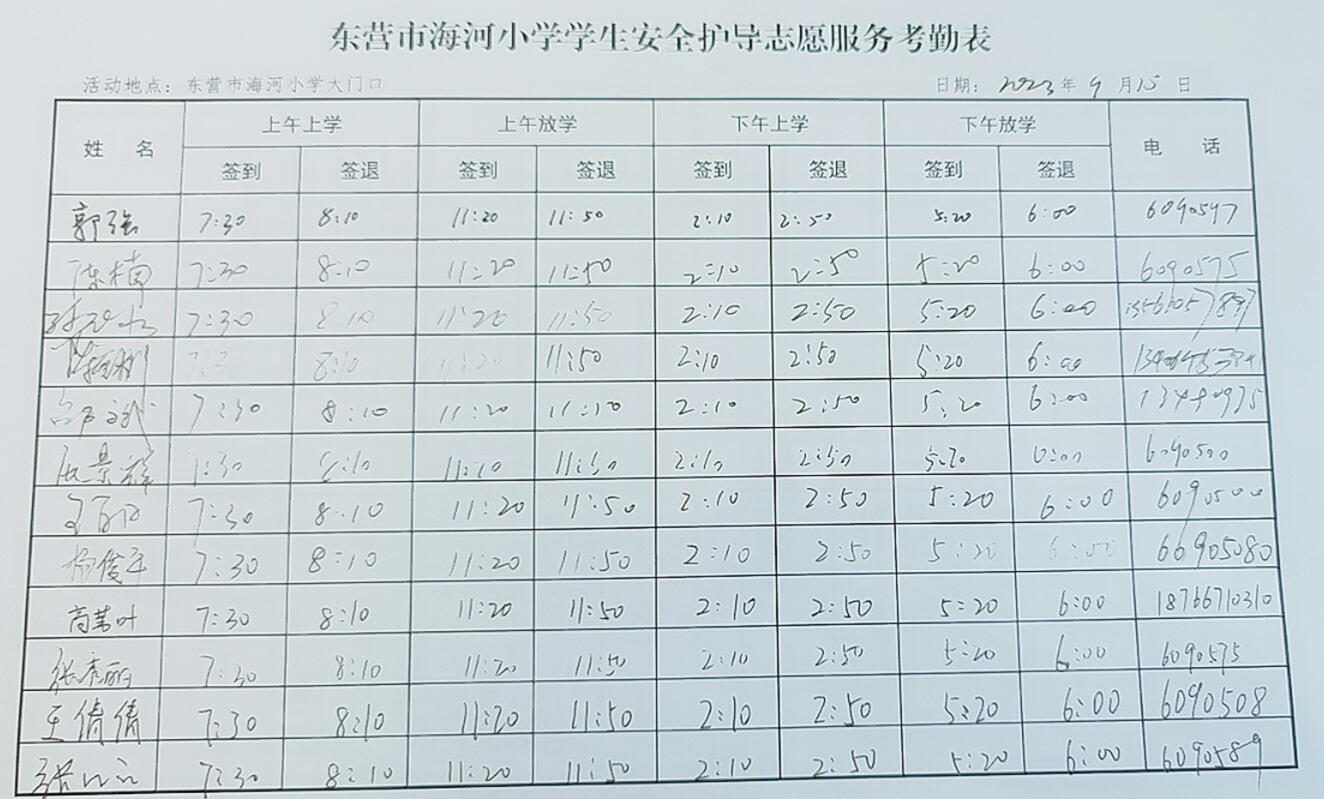 东营市海河小学学生安全护导志愿服务考勤表
活动地点：东营市海河小学大门口 日期：2023年9月15日
姓 名 上午上学 上午放学 下午上学 下午放学 电 话
签到 签退 签到 签退 签到 签退 签到 签退
郭强 7:30 8:10 11:20 11:50 2:10 2:50 5:20 6:00 6090597
陈楠 7:30 8:10 11:20 11:50 2:10 2:50 5:20 6:00 6090575
7:30 8:10 11:20 11:50 2:10 2:50 5:20 6:00
7:30 8:10 11:20 11:50 2:10 2:50 5:20 6:00
7:30 8:10 11:20 2:10 2:50 5:20 6:00 13490975
7:30 8:10 2:10 2:50 5:20 6:00 6090500
7:30 8:10 11:20 11:50 2:10 2:50 5:20 6:00 6090500
杨俊平 7:30 8:10 11:20 11:50 2:10 2:50 5:20 6:00 66905080
高苇叶 7:30 8:10 11:20 11:50 2:10 2:50 5:20 6:00 18766710310
张秀丽 7:30 8:10 11:20 11:50 2:10 2:50 5:20 6:00 6090575
王倩倩 7:30 8:10 11:20 11:50 2:10 2:50 5:20 6:00 6090508
7:30 8:10 11:20 11:50 2:10 2:50 5:20 6:00 6090589